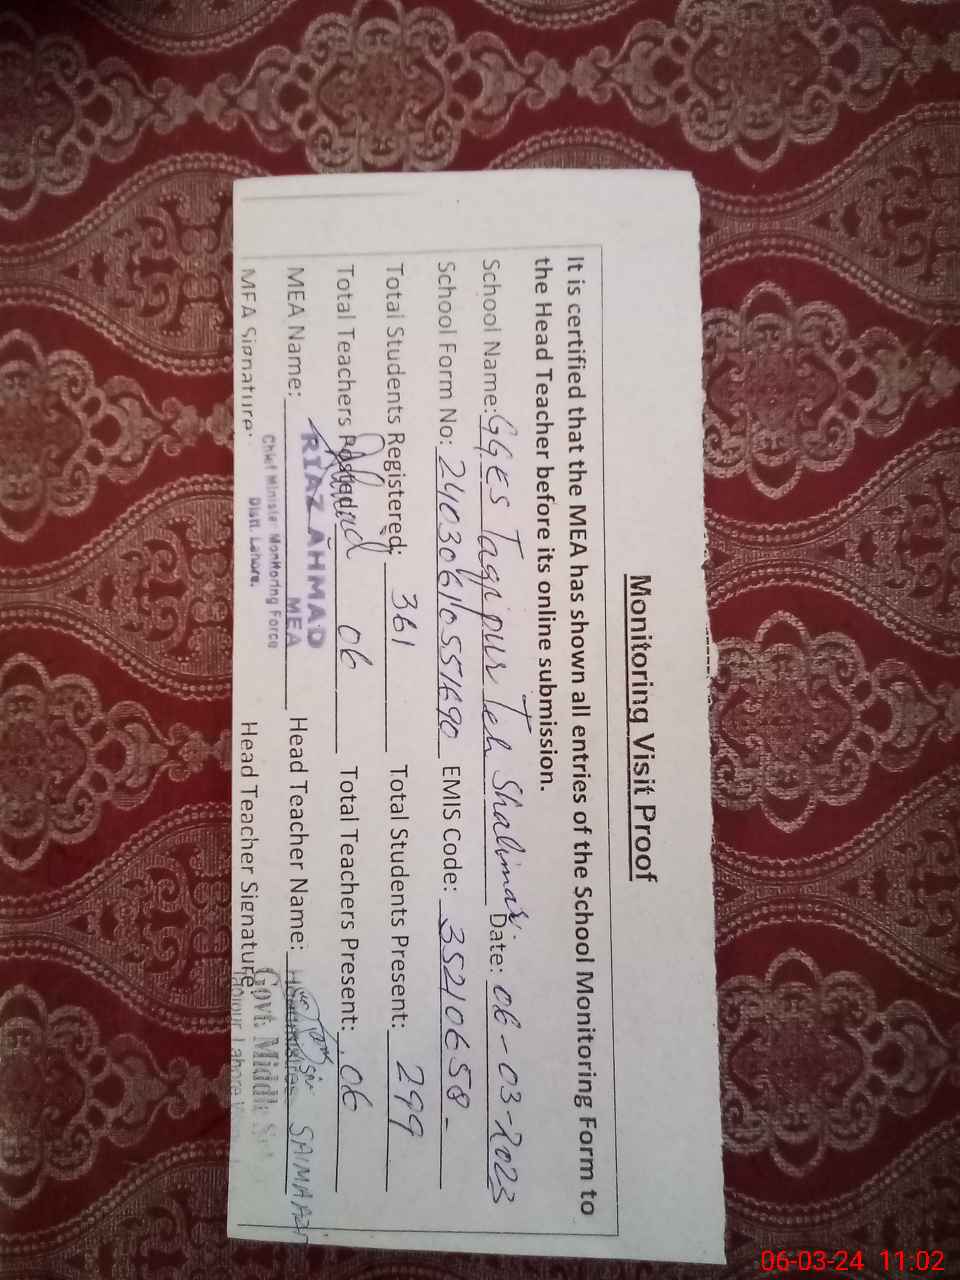 Monitoring Visit Proof
It is certified that the MEA has shown all entries of the School Monitoring Form to
the Head Teacher before its online submission.
School Name: GGES Tagipur Teh Shalimar. Date: 06-03-2023
School Form No: EMIS Code: 35210658-
Total Students Registered: 361 Total Students Present: 299
Total Teachers Posted: 06 Total Teachers Present: 06
MEA Name: RIAZ AHMAD Head Teacher Name: SAIMA
MEA
Chief Minister Monitoring Force
Distt. Lahore.
MEA Signature: Head Teacher Signature
Govt. Middle
Lahore
06-03-24 11:02